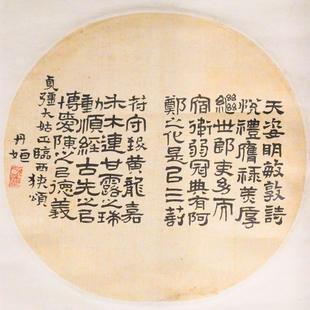 天姿明敏敦詩
悅禮膺祿美厚
繼世郎吏幼而
宿衛弱冠典有阿
鄭之化是以三莅
符守致黃龍嘉
禾木連甘露之瑞
動順經古先之以
博愛陳之以德義
大姑正臨西狹頌
丹